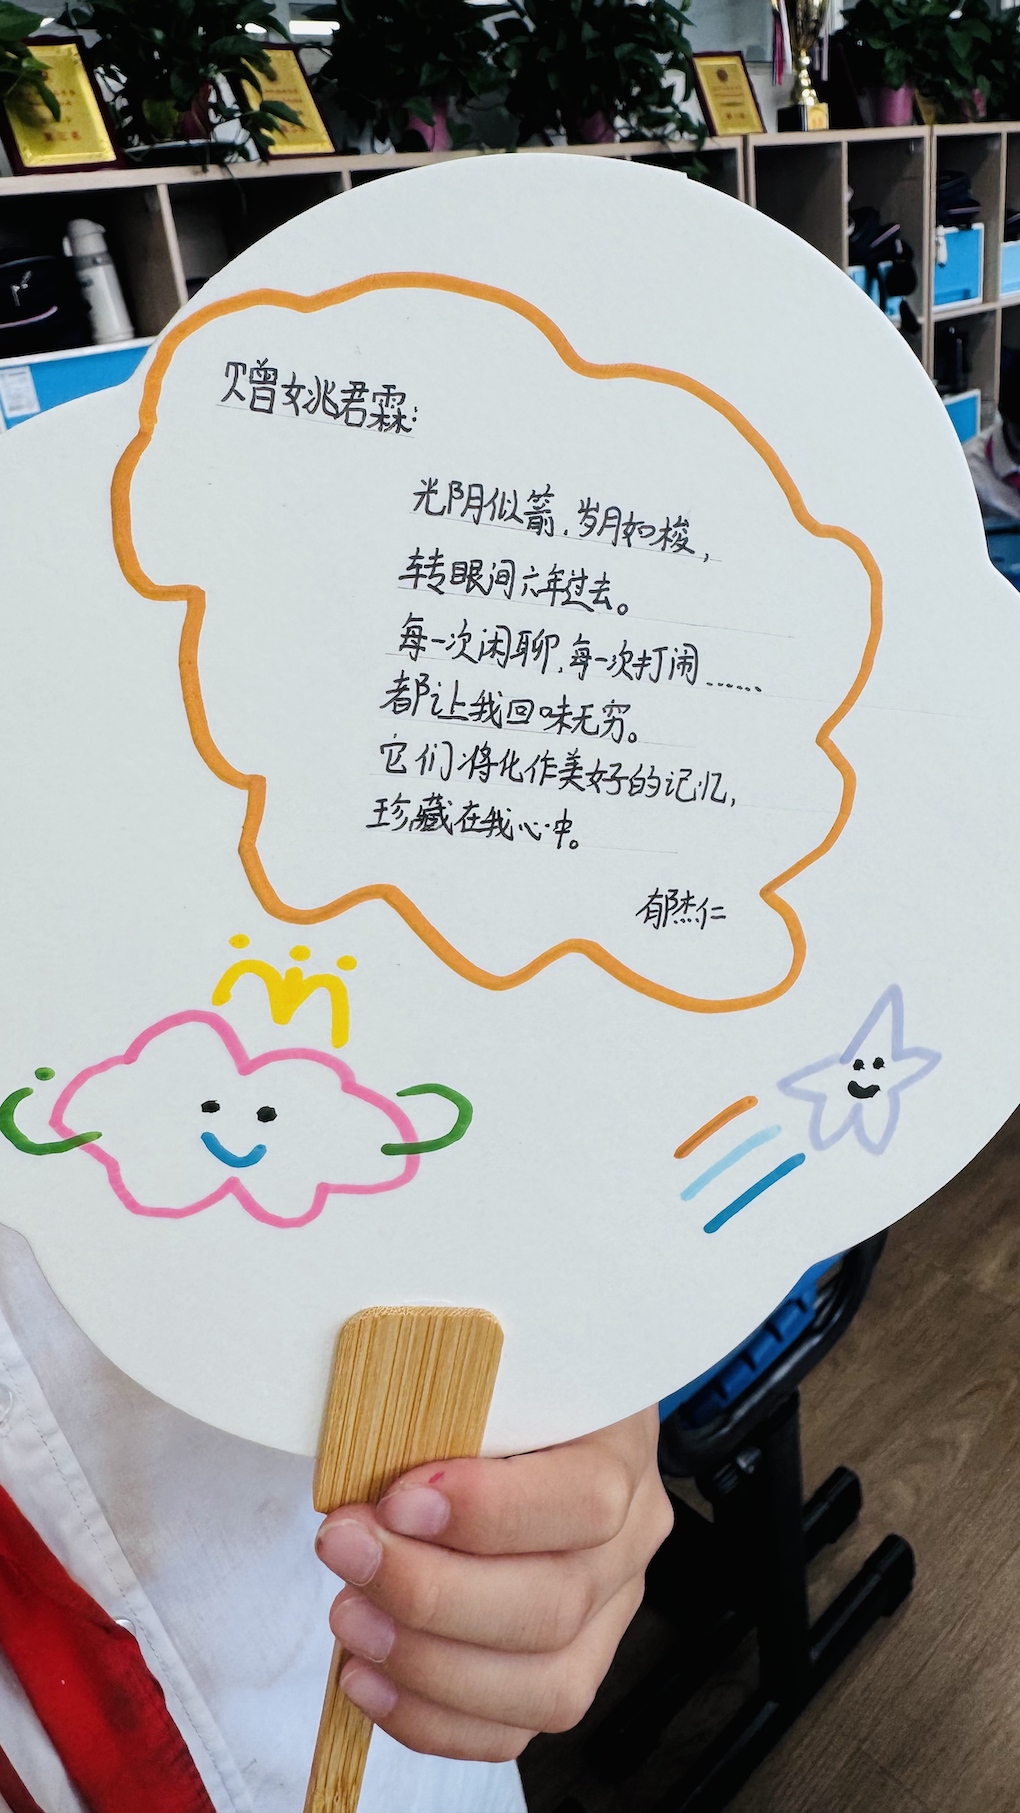 赠姚君霖:
光阴似箭，岁月如梭，
转眼间六年过去。
每一次闲聊，每一次打闹……
都让我回味无穷。
它们将化作美好的记忆，
珍藏在我心中。
郁杰仁